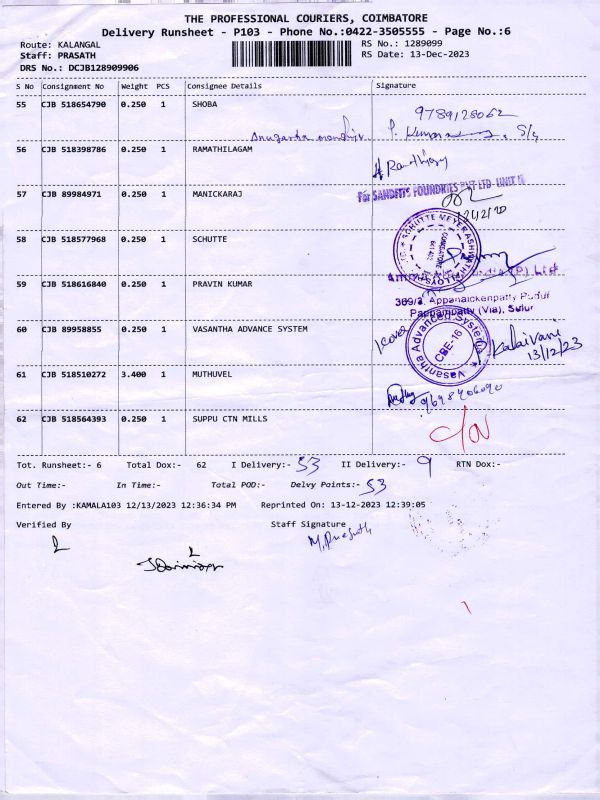 THE PROFESSIONAL COURIERS, COIMBATORE
Delivery Runsheet - P103 - Phone No.:0422-3505555 - Page No.:6
Route: KALANGAL
RS No.: 1289099
Staff: PRASATH
RS Date: 13-Dec-2023
DRS No.: DCJB128909906
S No Consignment No Weight PCS Consignee Details Signature
55 CJB 518654790 0.250 1 SHOBA
9789128062
56 CJB 518398786 0.250 1 RAMATHILAGAM
57 CJB 89984971 0.250 1 MANICKARAJ
For SANDFITS FOUNDRIES PVT LTD- UNIT
58 CJB 518577968 0.250 1 SCHUTTE
SCHUTTE MEYER ASHWATH ALLOYS
COIMBATORE
59 CJB 518616840 0.250 1 PRAVIN KUMAR
(P) Ltd
309/2, Appanaickenpatty Pudur
Pappampatty (Via), Sulur
60 CJB 89958855 0.250 1 VASANTHA ADVANCE SYSTEM
Vasantha Advanced Systems
CBE-16
1cover
Kalaivani
13/12/23
61 CJB 518510272 3.400 1 MUTHUVEL
62 CJB 518564393 0.250 1 SUPPU CTN MILLS
Tot. Runsheet:- 6 Total Dox:- 62 I Delivery:- 53 II Delivery:- 9 RTN Dox:-
Out Time:- In Time:- Total POD:- Delvy Points:- 53
Entered By :KAMALA103 12/13/2023 12:36:34 PM Reprinted On: 13-12-2023 12:39:05
Verified By Staff Signature
M. Prasath